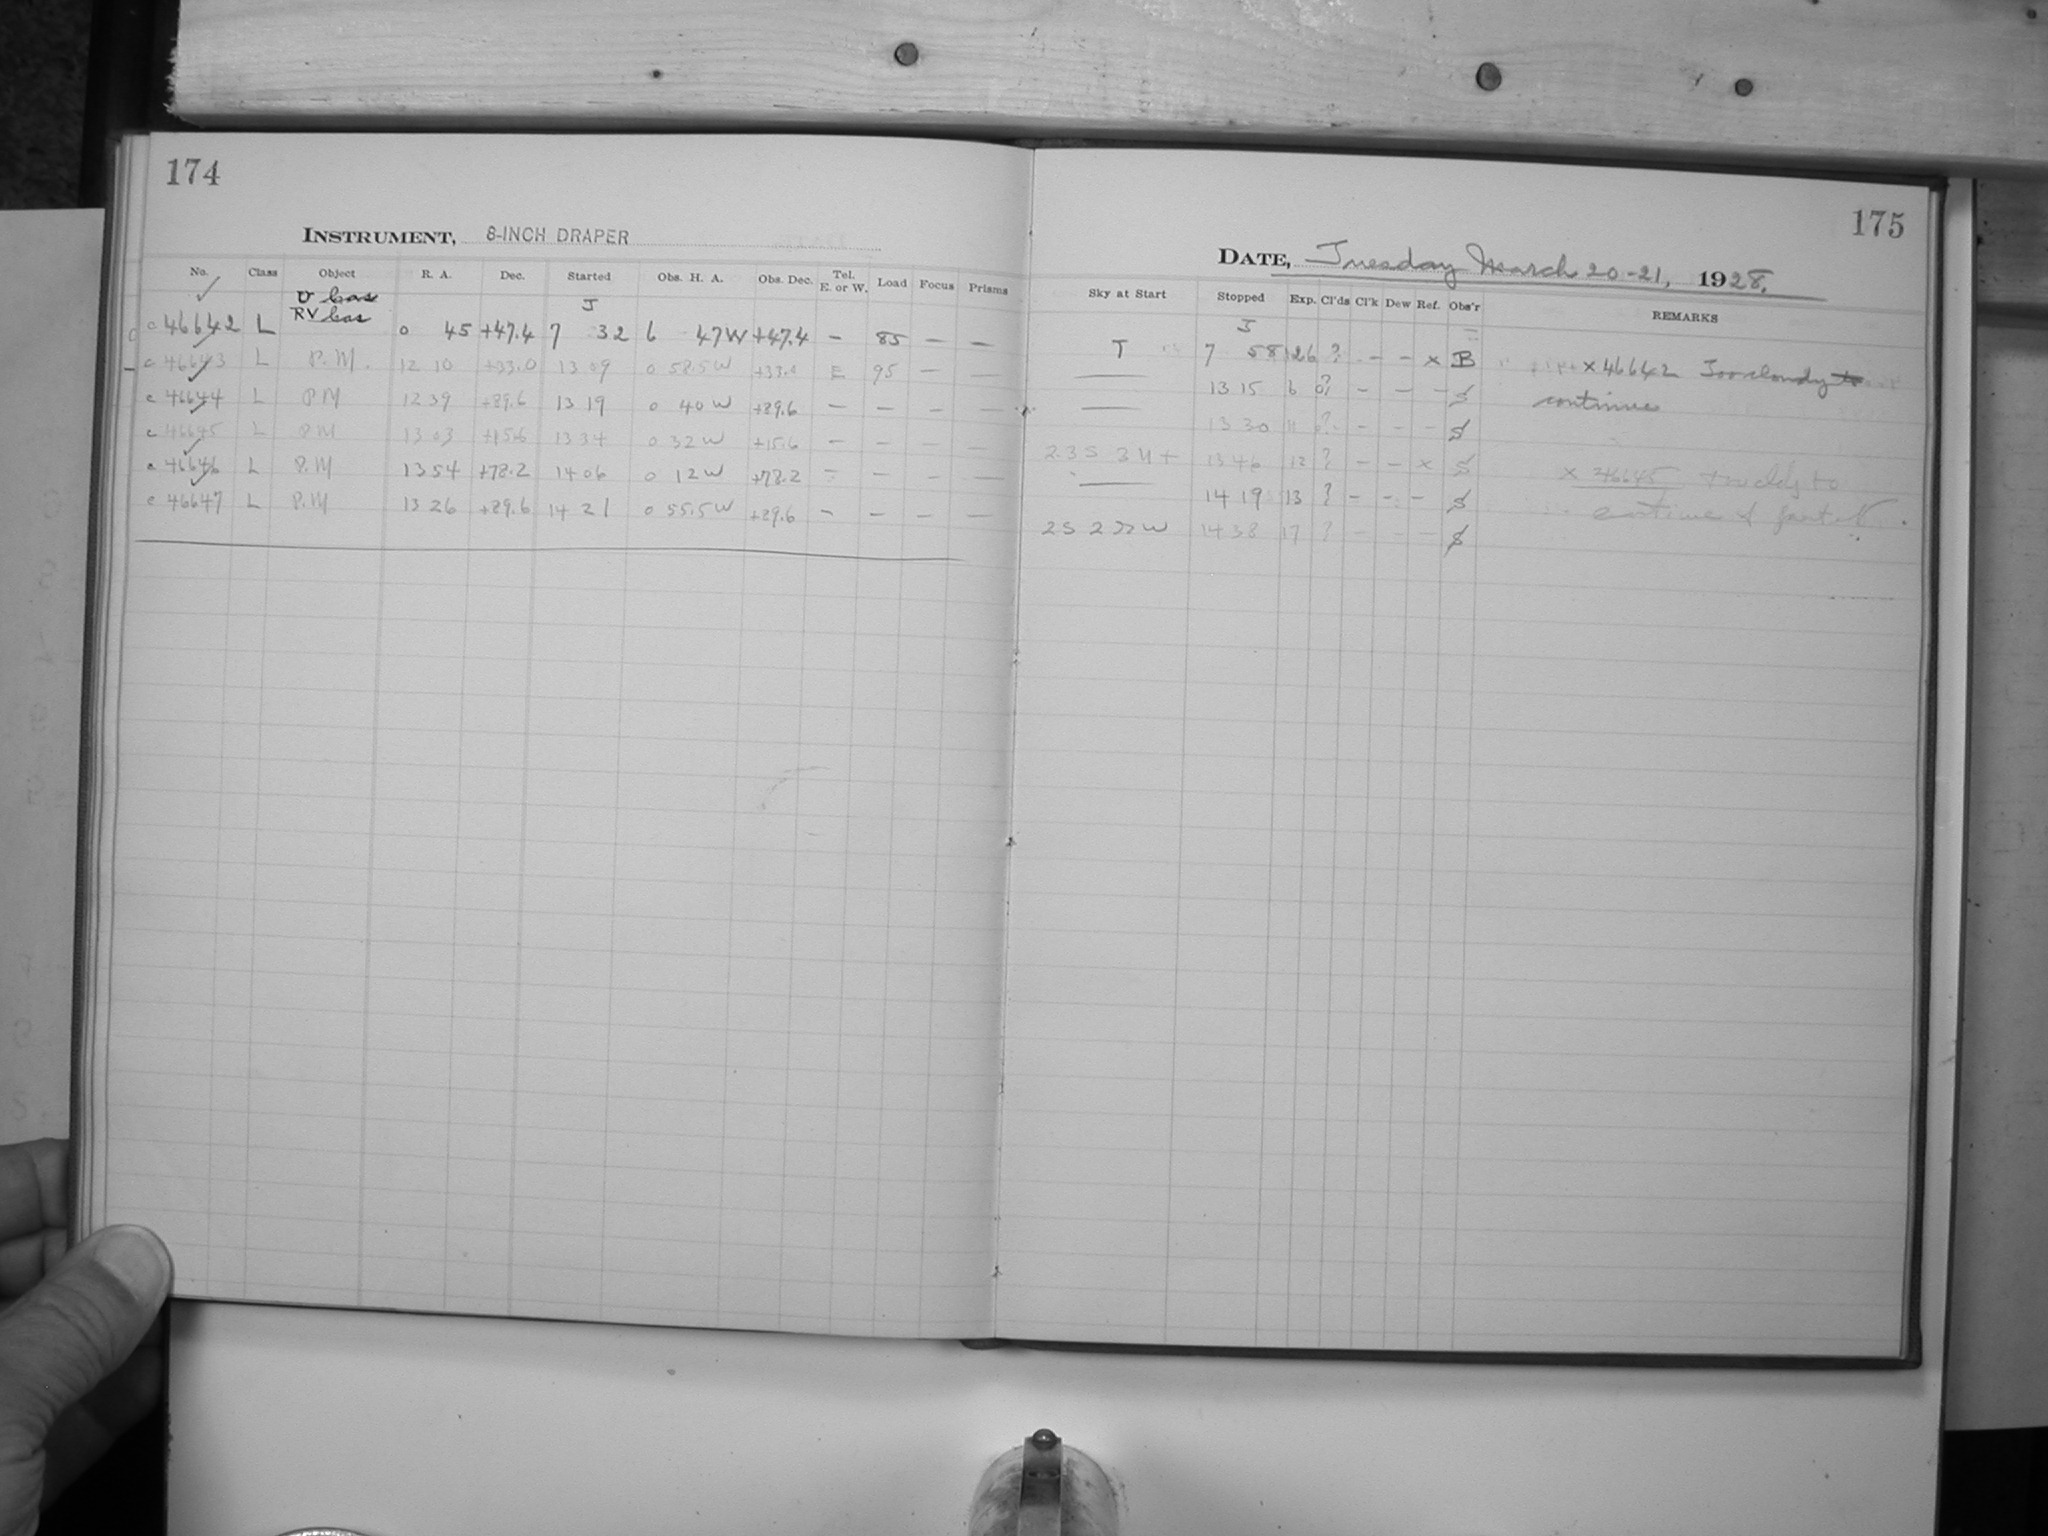 174
INSTRUMENT, 8-INCH DRAPER
No. Class Object R. A. Dec. Started Obs. H. A. Obs. Dec. Tel. E. or W. Load Focus Prisms
U Cas
RV Cas J
c 46642 L 0 45 +47.4 7 32 6 47 W +47.4 – 85 – –
c 46643 L P.M. 12 10 +33.0 13 09 0 58.5 W +33.0 E 95 – –
c 46644 L P M 12 39 +29.6 13 19 0 40 W +29.6 – – – –
c 46645 L P M 13 03 +15.6 13 34 0 32 W +15.6 – – – –
c 46646 L P.M 13 54 +78.2 14 06 0 12 W +78.2 – – – –
c 46647 L P.M 13 26 +29.6 14 21 0 55.5 W +29.6 – – – –
175
DATE, Tuesday March 20-21, 1928.
Sky at Start Stopped Exp. Cl'ds Cl'k Dew Ref. Obs'r REMARKS
J
T 7 58 26 ? – – x B x 46642 Too cloudy to
13 15 6 ? – – – S continue
13 30 11 ? – – – S
13 46 12 ? – – x S x 46645 to
14 19 13 ? – – – S continue
14 38 17 ? – – – S